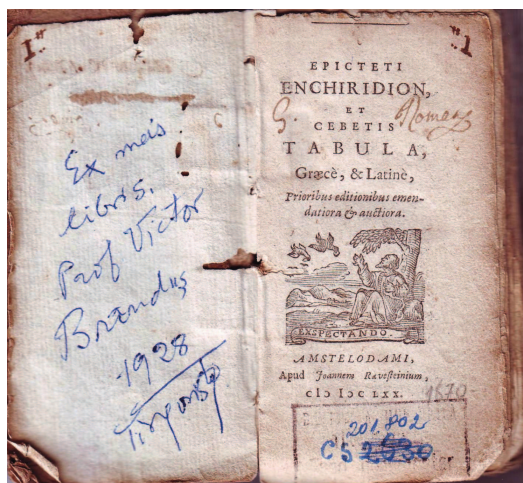 Ex meis
libris.
Prof Victor
Brandus
1928
EPICTETI
ENCHIRIDION,
ET
CEBETIS
TABULA,
Græcè, & Latinè,
Prioribus editionibus emen-
datiora & auctiora.
EXSPECTANDO.
AMSTELODAMI,
Apud Joannem Ravesteinium,
cIↄ Iↄc LXX.
1670
201.802
CS 2530